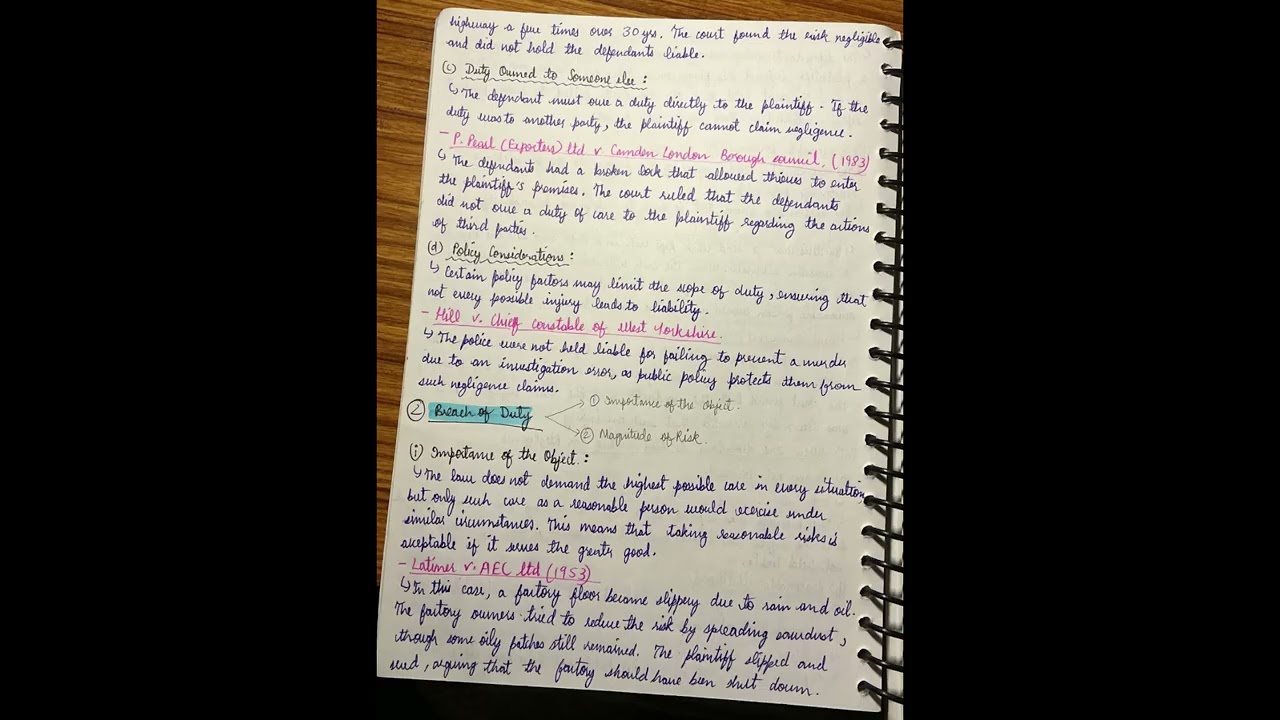 highway a few times over 30 yrs. The court found the risk negligible
and did not hold the defendants liable.
(c) Duty Owned to Someone else :
↳ The defendant must owe a duty directly to the plaintiff. If the
duty was to another party, the plaintiff cannot claim negligence.
- P. Pearl (Exporters) ltd v Camden London Borough council, (1983)
↳ The defendants had a broken lock that allowed thieves to enter
the plaintiff's premises. The court ruled that the defendants
did not owe a duty of care to the plaintiff regarding the actions
of third parties.
(d) Policy Considerations :
↳ Certain policy factors may limit the scope of duty, ensuring that
not every possible injury leads to liability.
- Hill v. Chief constable of West Yorkshire.
↳ The police were not held liable for failing to prevent a murder
due to an investigation error, as public policy protects them from
such negligence claims.
② Breach of Duty
① Importance of the Object.
② Magnitude of Risk.
(i) Importance of the Object :
↳ The law does not demand the highest possible care in every situation
but only such care as a reasonable person would exercise under
similar circumstances. This means that taking reasonable risks is
acceptable if it serves the greater good.
- Latimer v. AEC ltd (1953)
↳ In this case, a factory floor became slippery due to rain and oil.
The factory owners tried to reduce the risk by spreading sawdust,
though some oily patches still remained. The plaintiff slipped and
sued, arguing that the factory should have been shut down.